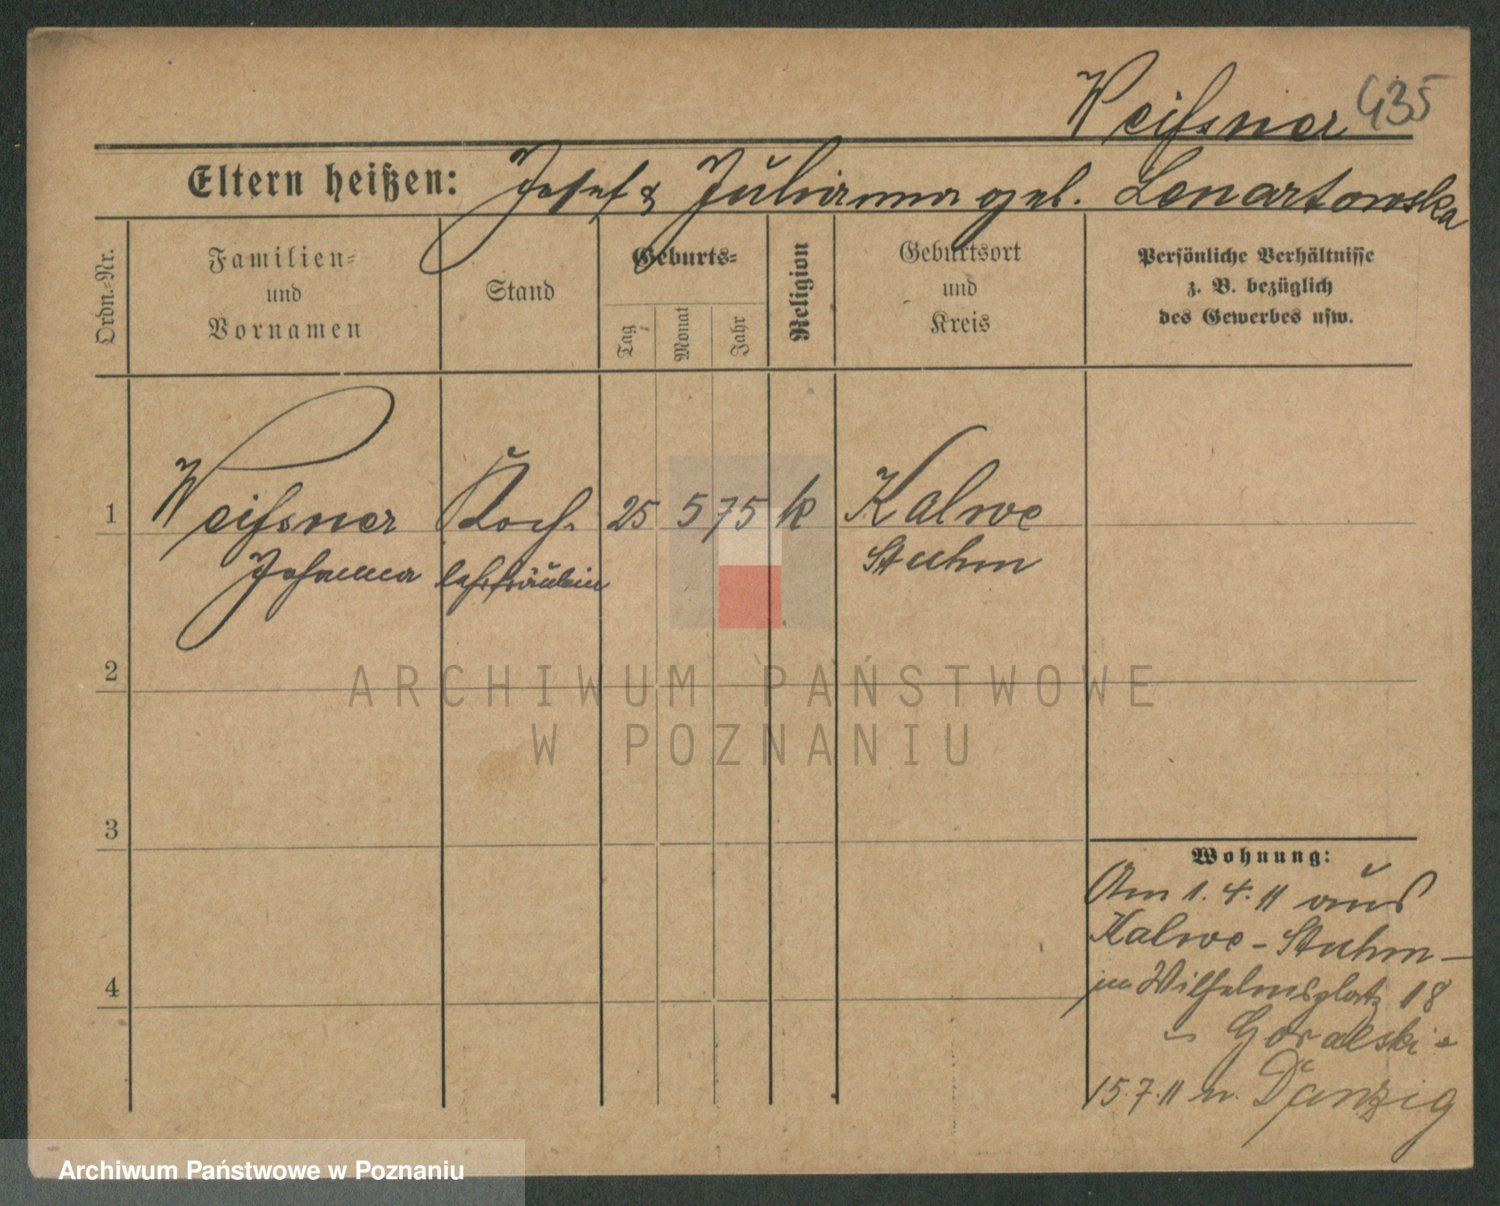 Weißner 435
Eltern heißen: Josef & Julianna geb. Lenartowska
Ordn.-Nr.
Familien-
und
Vornamen
Stand
Geburts-
Tag
Monat
Jahr
Religion
Geburtsort
und
Kreis
Persönliche Verhältnisse
z. B. bezüglich
des Gewerbes usw.
1 Weißner Koch- 25 5 75 k Kalwe
Johanna lehrfräulein Stuhm
2
3
4
Wohnung:
Am 1.4.11 aus
Kalwe - Stuhm -
Wilhelmsplatz 18
Goralski -
15.7.11 n. Danzig
ARCHIWUM PAŃSTWOWE
W POZNANIU
Archiwum Państwowe w Poznaniu